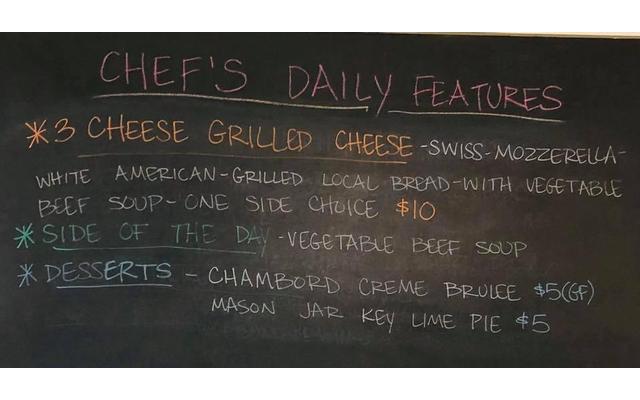 CHEF'S DAILY FEATURES
*3 CHEESE GRILLED CHEESE -SWISS-MOZZERELLA-
WHITE AMERICAN-GRILLED LOCAL BREAD-WITH VEGETABLE
BEEF SOUP- ONE SIDE CHOICE $10
*SIDE OF THE DAY -VEGETABLE BEEF SOUP
*DESSERTS - CHAMBORD CREME BRULEE $5(GF)
MASON JAR KEY LIME PIE $5